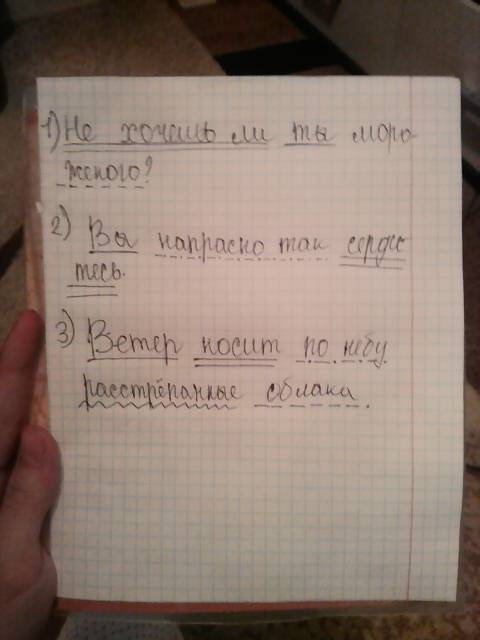 1) Не хочешь ли ты моро
женого?
2) Вы напрасно так серди
тесь.
3) Ветер носит по небу
расстрёпанные облака.